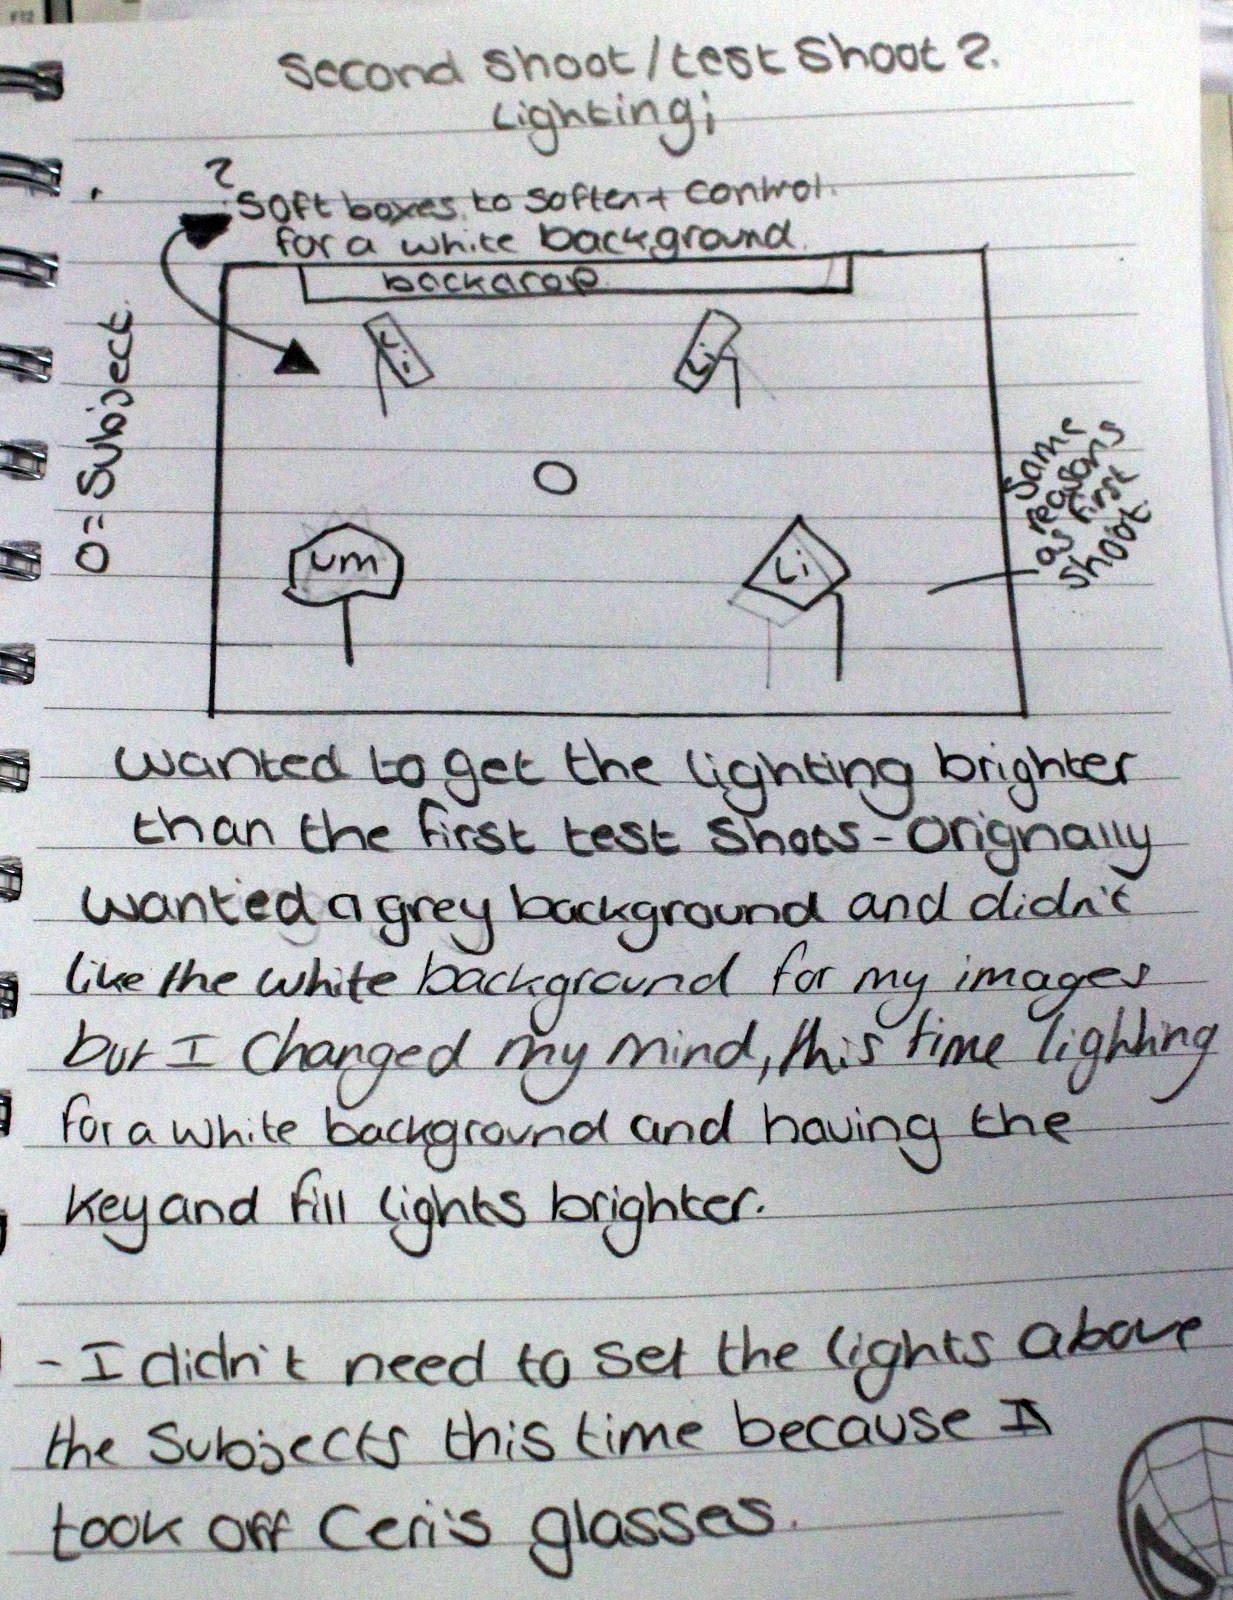 Second Shoot / test Shoot 2.
Lighting;
2 Soft boxes to soften + control
for a white background.
backdrop
Li
Li
O = Subject
Same
reasons
as first
shoot.
um
Li
wanted to get the lighting brighter
than the first test shots - Orignally
wanted a grey background and didn't
like the white background for my images
but I changed my mind, this time lighting
for a white background and having the
key and fill lights brighter.
- I didn't need to set the lights above
the subjects this time because I
took off Ceri's glasses.